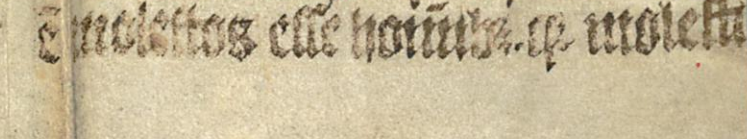 ē molestos esse hoīnibꝫ. ip̄ molesti